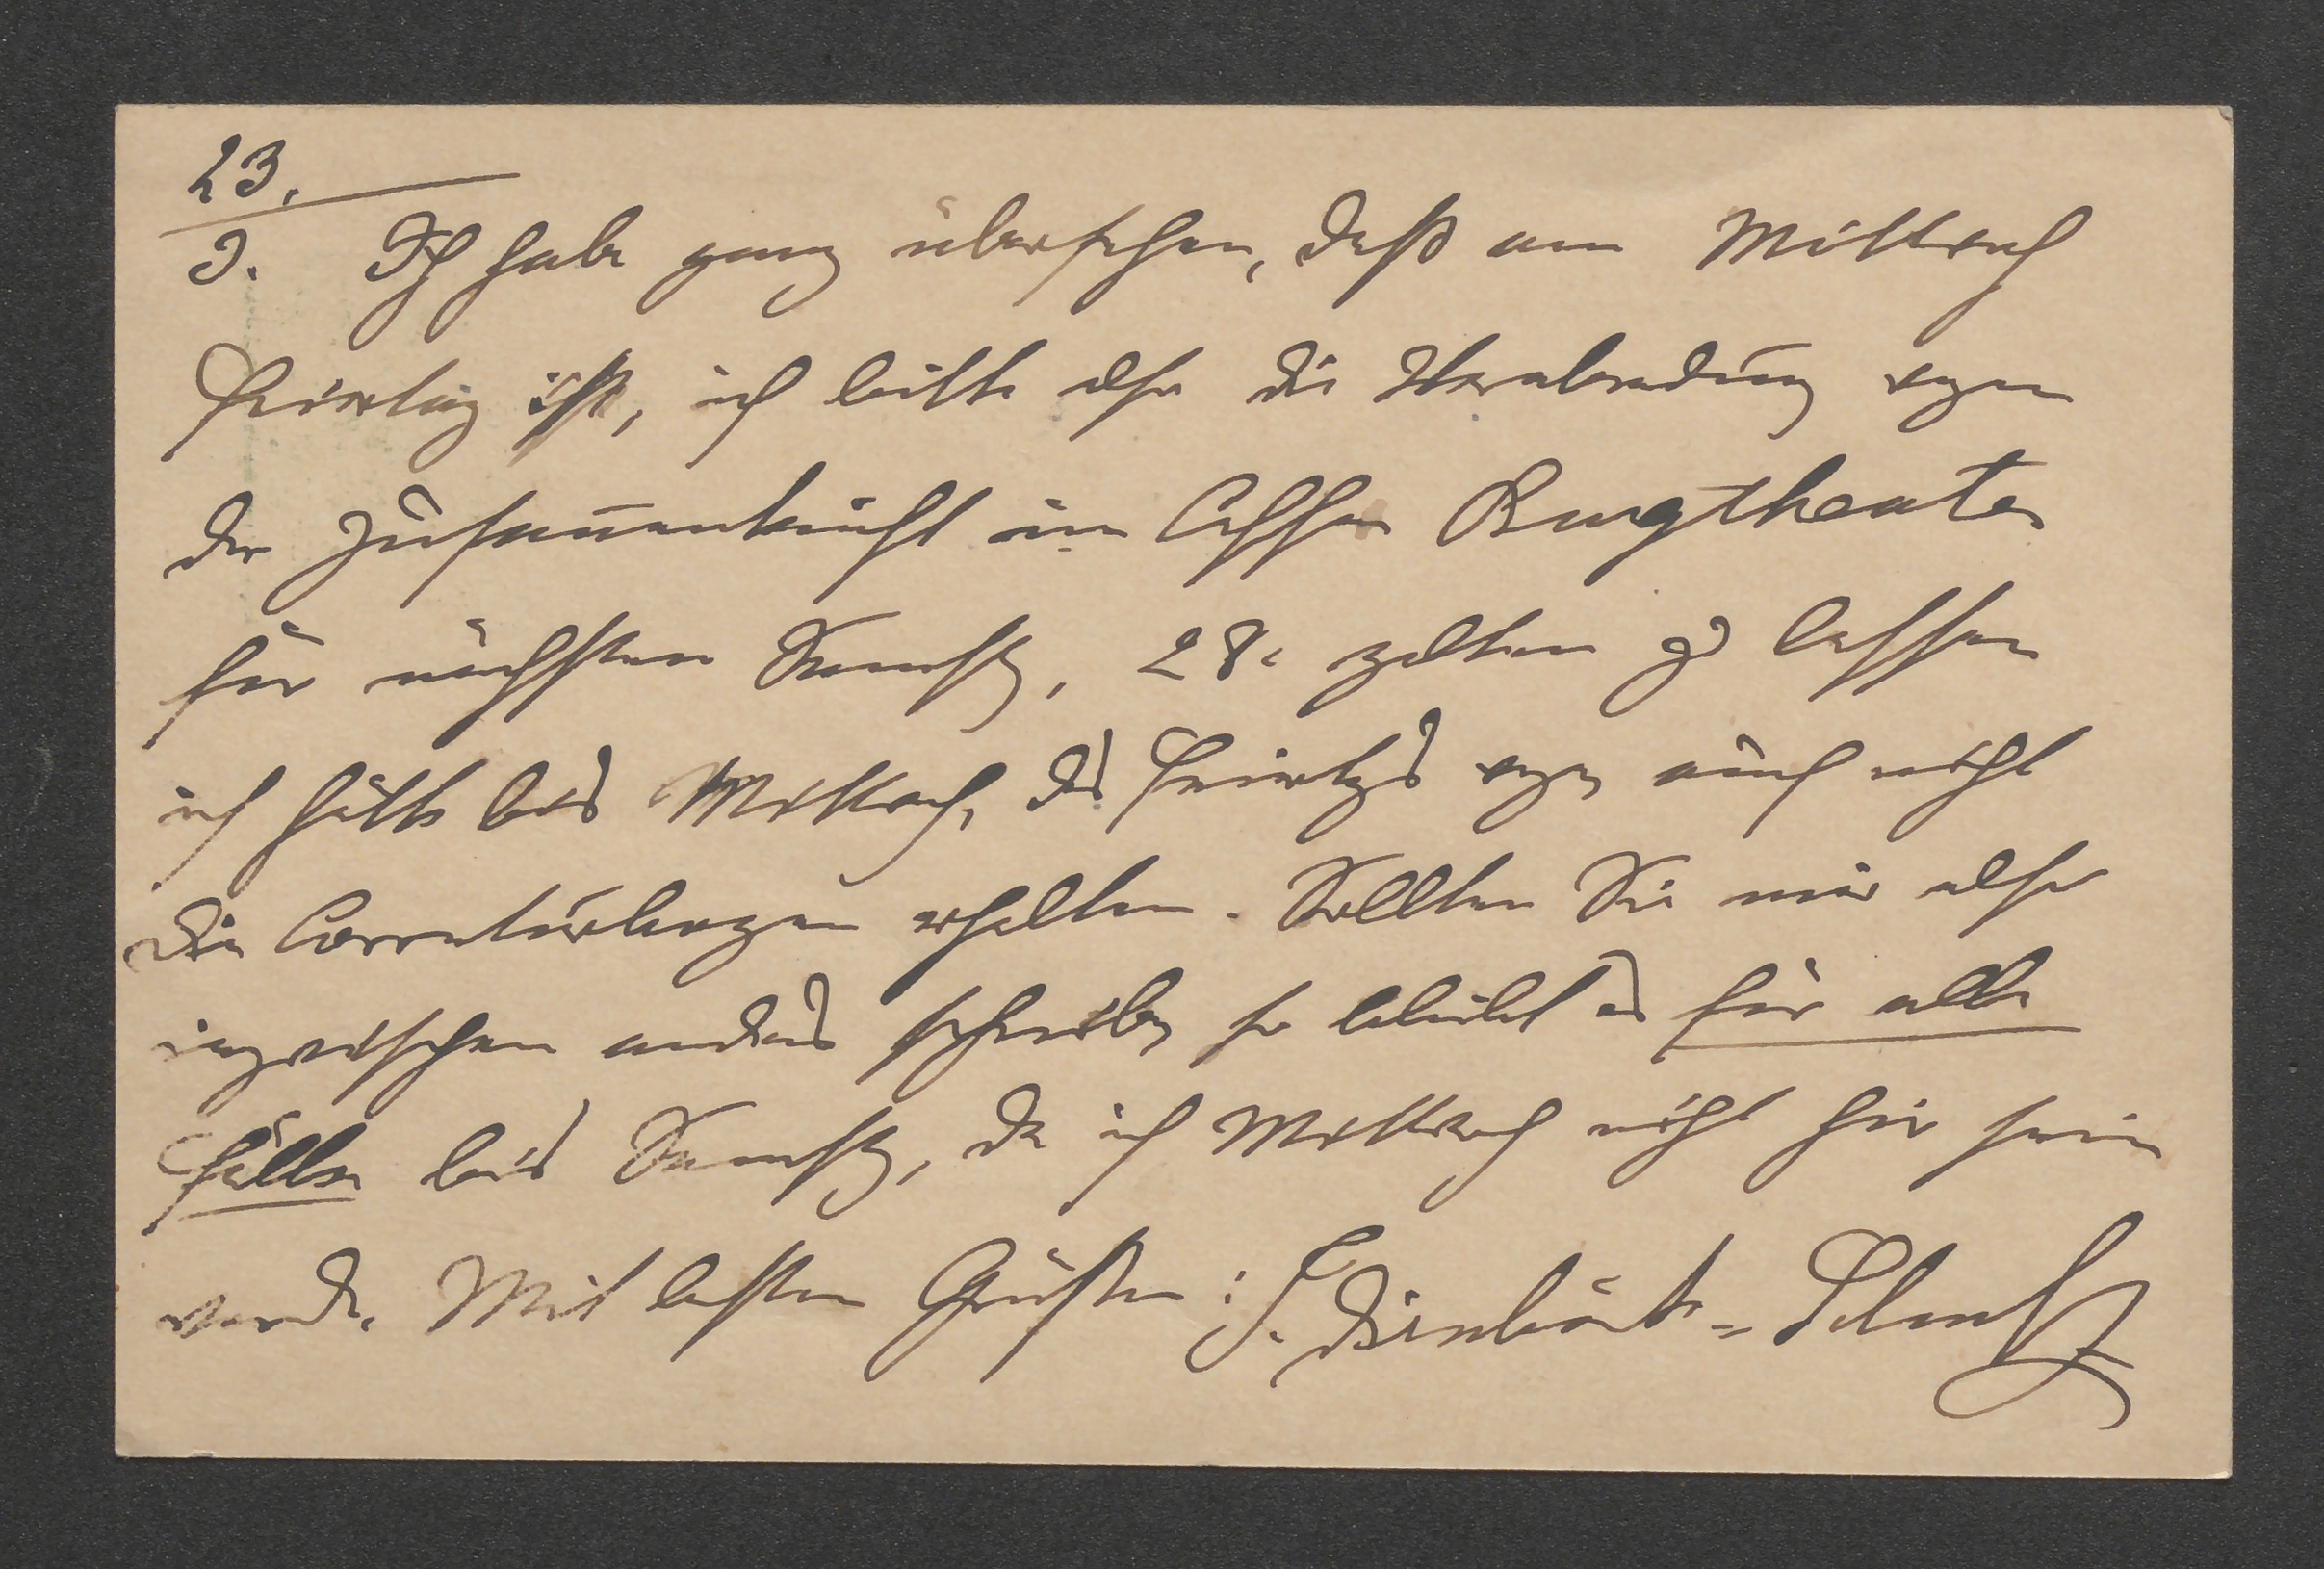 23.
3. Ich habe ganz übersehen, daß am Mittwoch
Feiertag ist, ich bitte also die Verabredung wegen
der Zusam̅enkunft im Caffee Burgtheater
für nächsten Samstg, 28. gelten zu lassen
ich hätte bis Mittwoch, des Feiertgs wegen auch nicht
die Correcturbogen erhalten. Sollten Sie mir also
inzwischen anders schreiben so bleibt es für alle
Fälle bei Samstg, da ich Mittwoch nicht hier sein
werde. Mit besten Grüßen: